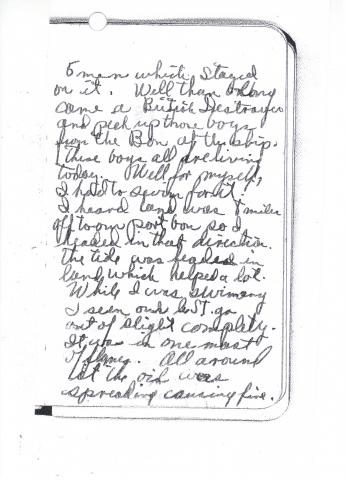 5 men which stayed
on it. Well than along
came a British Destroyer
and pick up those boys
from the Bow of the ship.
These boys all are living
today. Well for myself,
I had to swim for it.
I heard land was 8 miles
off to our port bow so I
headed in that direction.
the tide was headed in
land which helped a lot.
While I was swimeng
I seen our L.S.T. go
out of slight complety.
It was in one mast
of flames. All around
the oil was
spreading causing fire.